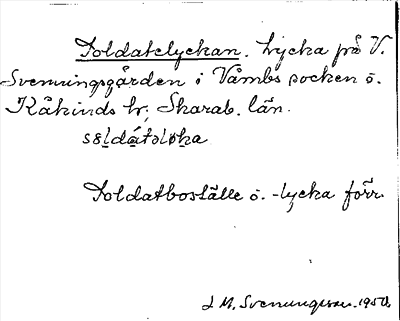 Soldatelyckan. Lycka på V.
Svenningsgården i Våmbs socken o.
Kåkinds hr, Skarab. län.
Soldatboställe o. -lycka förr.
J. M. Svenungsson. 1950.